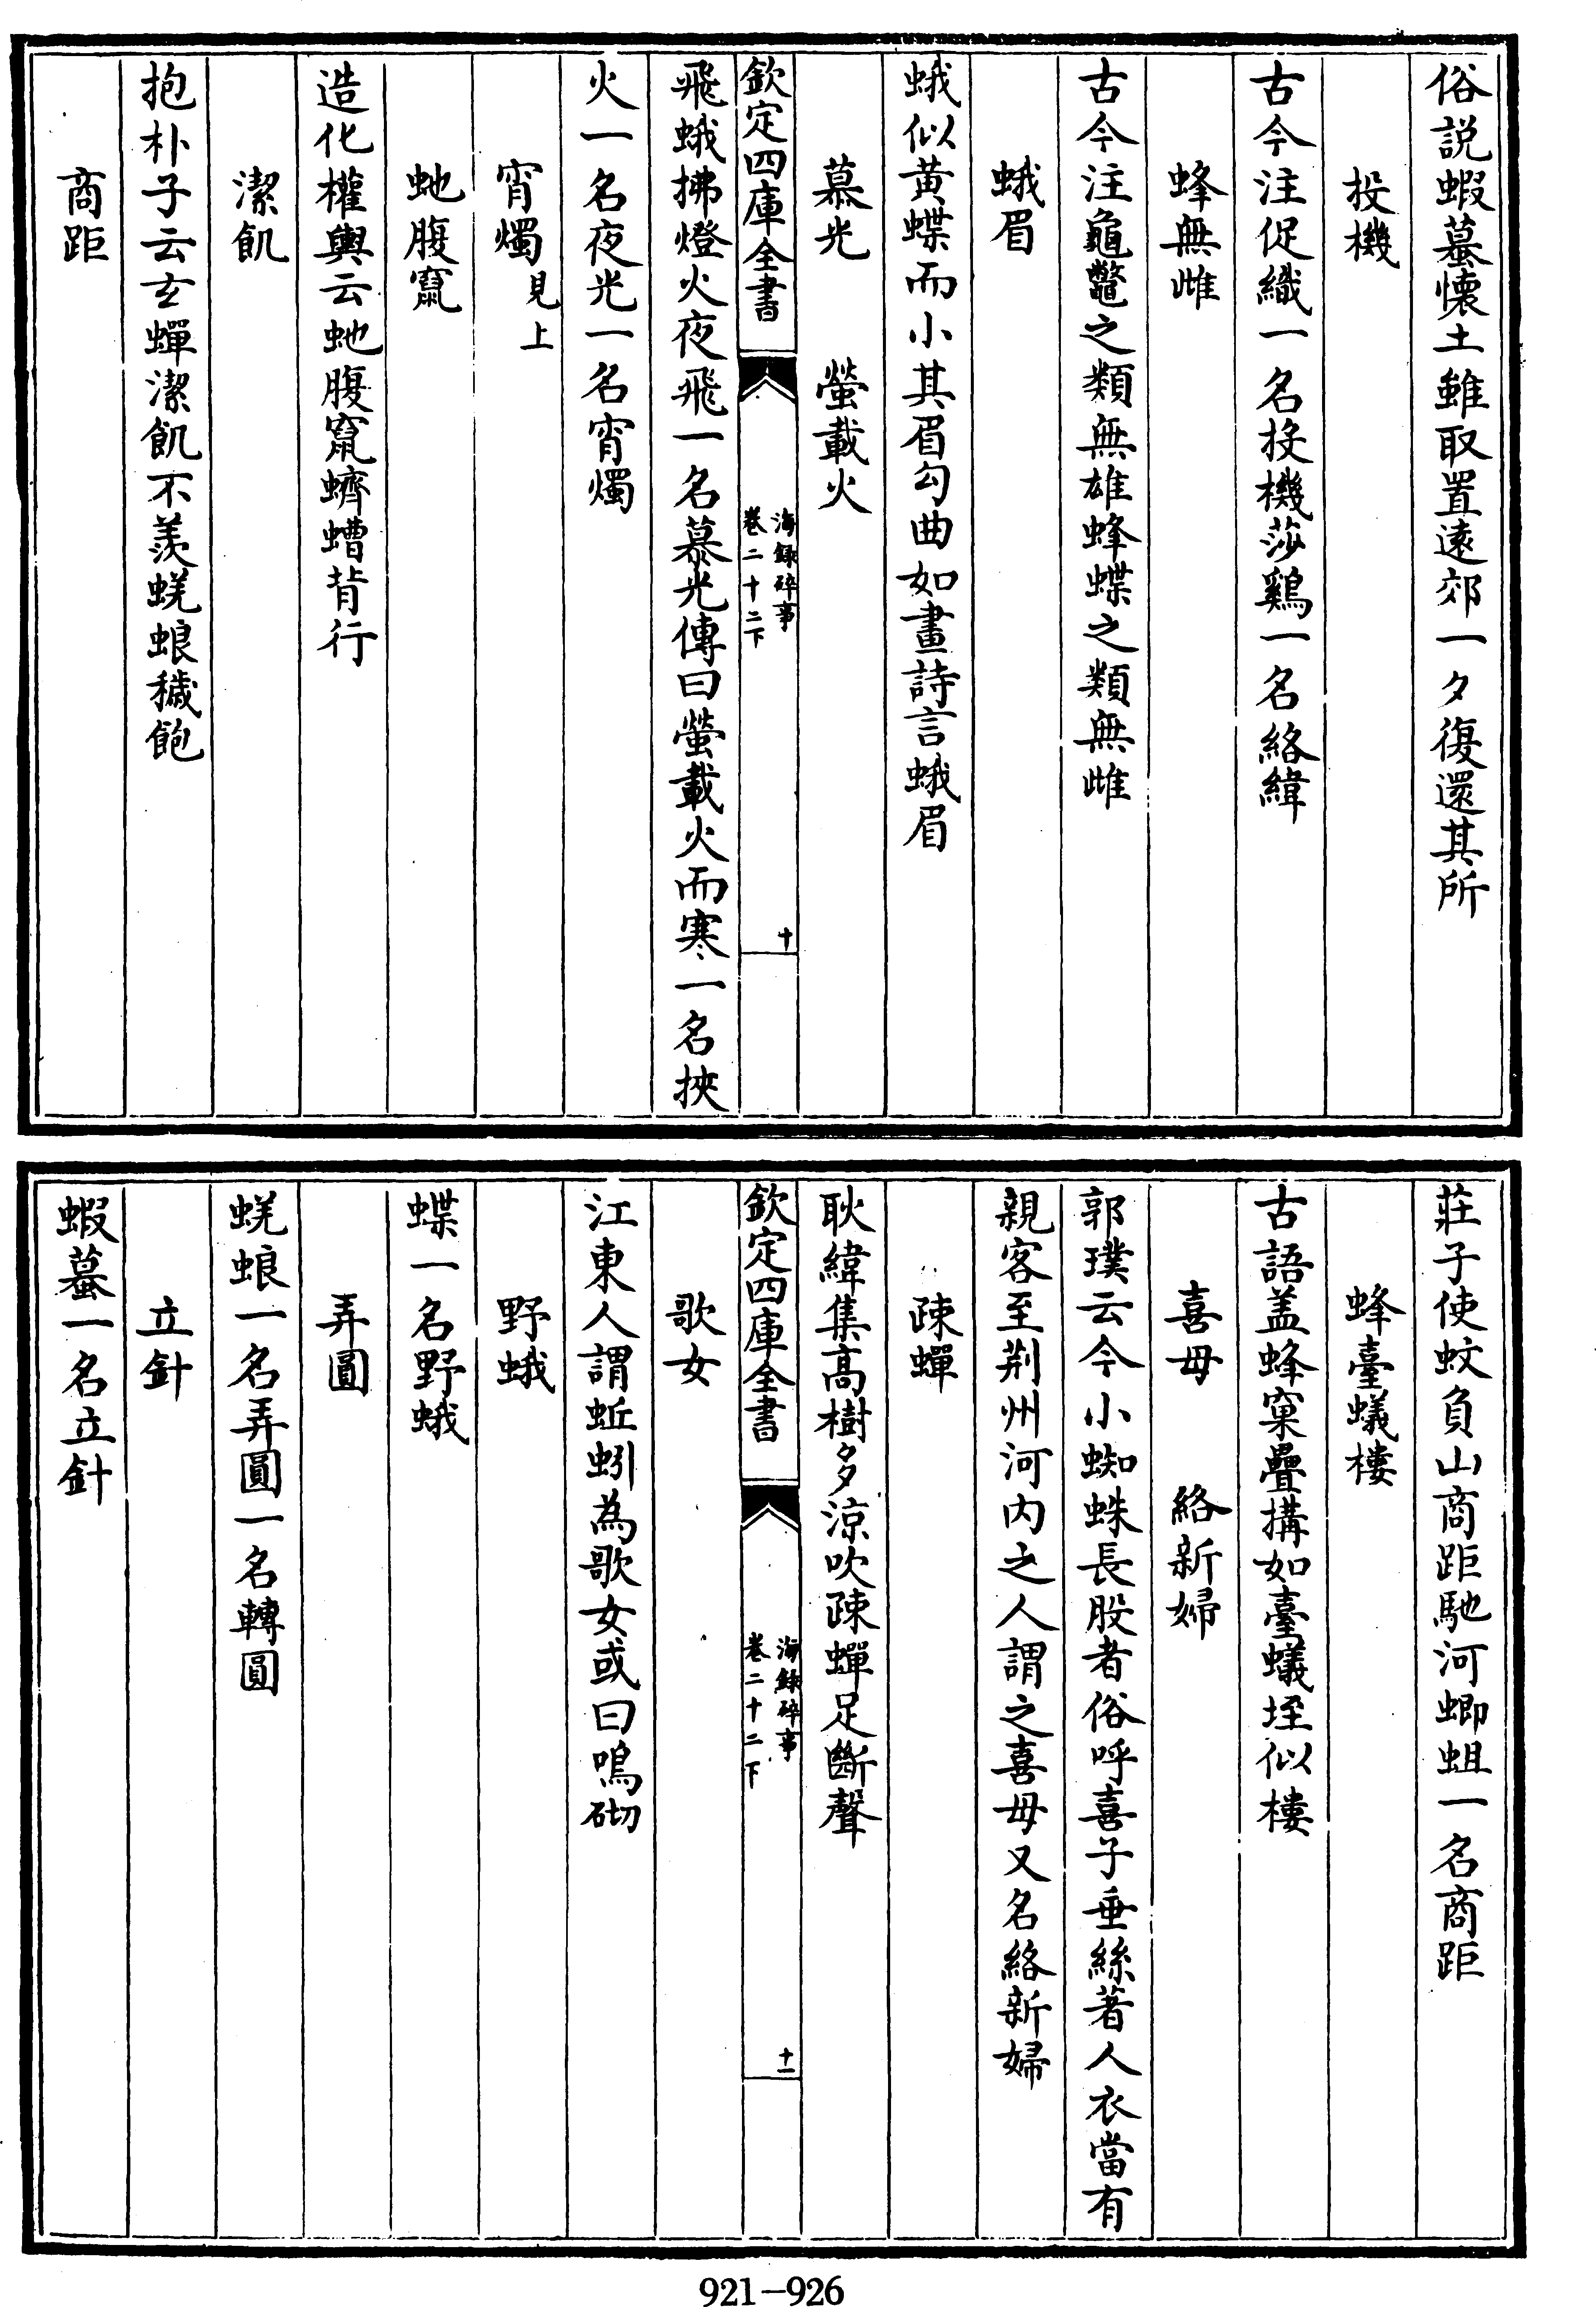 俗説蝦蟇懷土雖取置遠郊一夕復還其所
投機
古今注促織一名投機莎鷄一名絡緯
蜂無雌
古今注龜鼈之類無雄蜂蝶之類無雌
蛾眉
蛾似黃蝶而小其眉勾曲如畫詩言蛾眉
慕光　螢載火
欽定四庫全書
海録碎事
卷二十二下
十
飛蛾拂燈火夜飛一名慕光傳曰螢載火而寒一名挾
火一名夜光一名宵燭
宵燭見上
虵腹竄
造化權輿云虵腹竄蠐螬背行
潔飢
抱朴子云玄蟬潔飢不羨蜣蜋穢飽
商距
莊子使蚊負山商距馳河蝍蛆一名商距
蜂臺蟻樓
古語盖蜂窠疊搆如臺蟻垤似樓
喜母　絡新婦
郭璞云今小蜘蛛長股者俗呼喜子垂絲著人衣當有
親客至荆州河内之人謂之喜母又名絡新婦
疎蟬
耿緯集高樹多涼吹疎蟬足斷聲
欽定四庫全書
海録碎事
卷二十二下
十一
歌女
江東人謂蚯蚓為歌女或曰鳴砌
野蛾
蝶一名野蛾
弄圓
蜣蜋一名弄圓一名轉圓
立針
蝦蟇一名立針
921-926